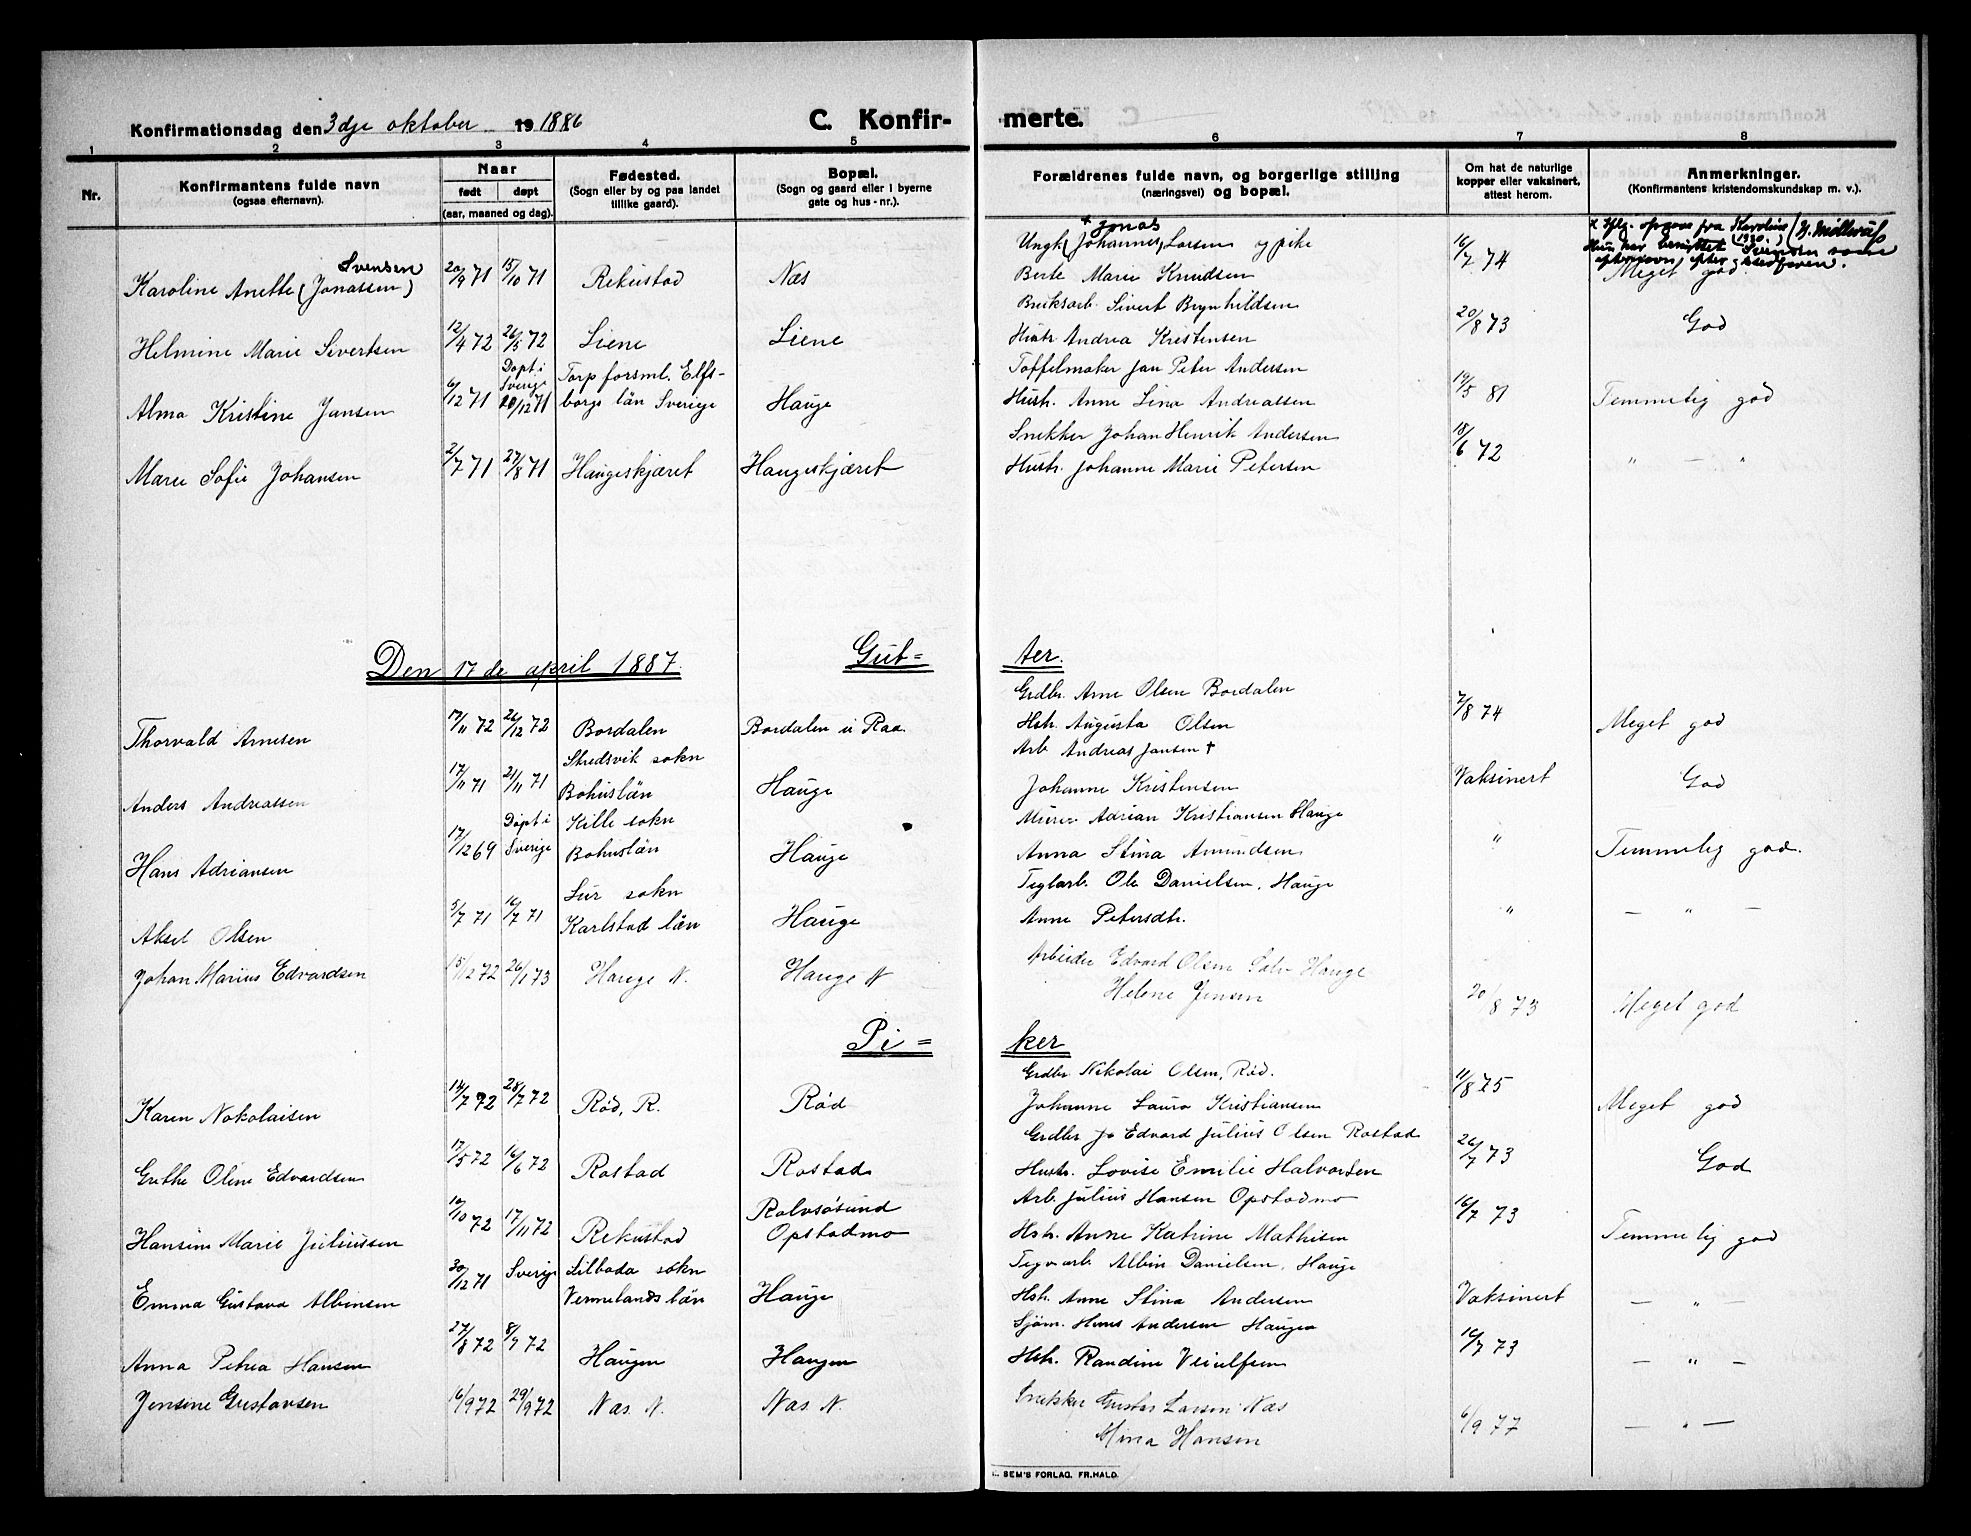 Konfirmationsdag den 3dje oktober 19 1886
C. Konfir-
merte.
1 2 3 4 5 6 7 8
Nr.
Konfirmantens fulde navn
(ogsaa efternavn).
Naar
født døpt
(aar, maaned og dag).
Fødested.
(Sogn eller by og paa landet
tillike gaard).
Bopæl.
(Sogn og gaard eller i byerne
gate og hus-nr.).
Forældrenes fulde navn, og borgerlige stilling
(næringsvei) og bopæl.
Om hat de naturlige
kopper eller vaksinert,
attest herom.
Anmerkninger.
(Konfirmantens kristendomskundskap m. v.).
+ Jonas
Ungk. (Johannes) Larsen og pike
Svensen
Karoline Anette (Jonassen) 20/9 71 15/10 71 Rekustad Næs Berte Marie Knudsen 16/7 74 Meget god
Bruksarb. Sivert Brynhildsen
Helmine Marie Sivertsen 12/4 72 26/5 72 Liene Liene Hustr. Andrea Kristensen 20/8 73 God
Døpt i Torp forsml. Elfs- Toffelmaker Jan Peter Andersen
Alma Kristine Jansen 6/12 71 Sverige 20/12 71 borgs län Sverige Hauge Hustr. Anne Lina Andreassen 19/5 81 Temmelig god
Snekker Johan Henrik Andersen
Marie Sofie Johansen 2/7 71 27/8 71 Haugeskjæret Haugeskjæret Hustr. Johanne Marie Petersen 18/6 72 " — "
Den 17de april 1887. Gut= ter.
Grdbr. Arne Olsen Bordalen
Thorvald Arnesen 17/11 72 26/12 72 Bordalen Bordalen u Raa. Hstr. Augusta Olsen 7/8 74 Meget god
Stredsvik sokn Arb. Andreas Jansen +
Anders Andreassen 17/11 71 21/11 71 Bohuslän Hauge Johanne Kristensen Vaksinert God
Døpt i Kille sokn Murer Adrian Kristiansen Hauge
Hans Adriansen 17/12 69 Sverige Bohuslän Hauge Anna Stina Amundsen " Temmelig god.
Sur sokn Teglarb. Ole Danielsen, Hauge
Aksel Olsen 5/7 71 16/7 71 Karlstad län Hauge Anne Petersdtr. " — " —
Arbeider Edvard Olsen Hauge
Johan Marius Edvardsen 15/12 72 26/1 73 Hauge N. Hauge N Helene Jensen 20/8 73 Meget god
Pi= ker
Grdbr Nikolai Olsen, Rød.
Karen Nokolaisen 14/7 72 28/7 72 Rød, R. Rød Johanne Laura Kristiansen 11/8 75 Meget god
Grdbr Jo Edvard Julius Olsen Rostad
Grethe Oline Edvardsen 17/5 72 16/6 72 Rostad Rostad Hustr. Lovise Emilie Halvorsen 26/7 73 God
Rolvsøsund Arb. Julius Hansen Opstadmo
Hansine Marie Juliussen 10/10 72 17/11 72 Rekustad Opstadmo Hstr. Anne Katrine Mathisen 16/7 73 Temmelig god
Silbada sokn Albin Danielsen, Hauge
Emma Gustava Albinsen 30/12 71 Sverige Vermelands län Hauge Hstr. Anne Stina Andersen Vaksinert — " —
Sjøm. Hans Andersen Haugen
Anna Petrea Hansen 27/8 72 8/9 72 Haugen Haugen Hstr. Randine 16/7 73 — " —
Snekker Gustav Larsen Næs
Jensine Gustavsen 16/9 72 29/9 72 Næs N. Næs N. Mina Hansen 6/9 77 — " —
SEM'S FORLAG. FR.HALD.